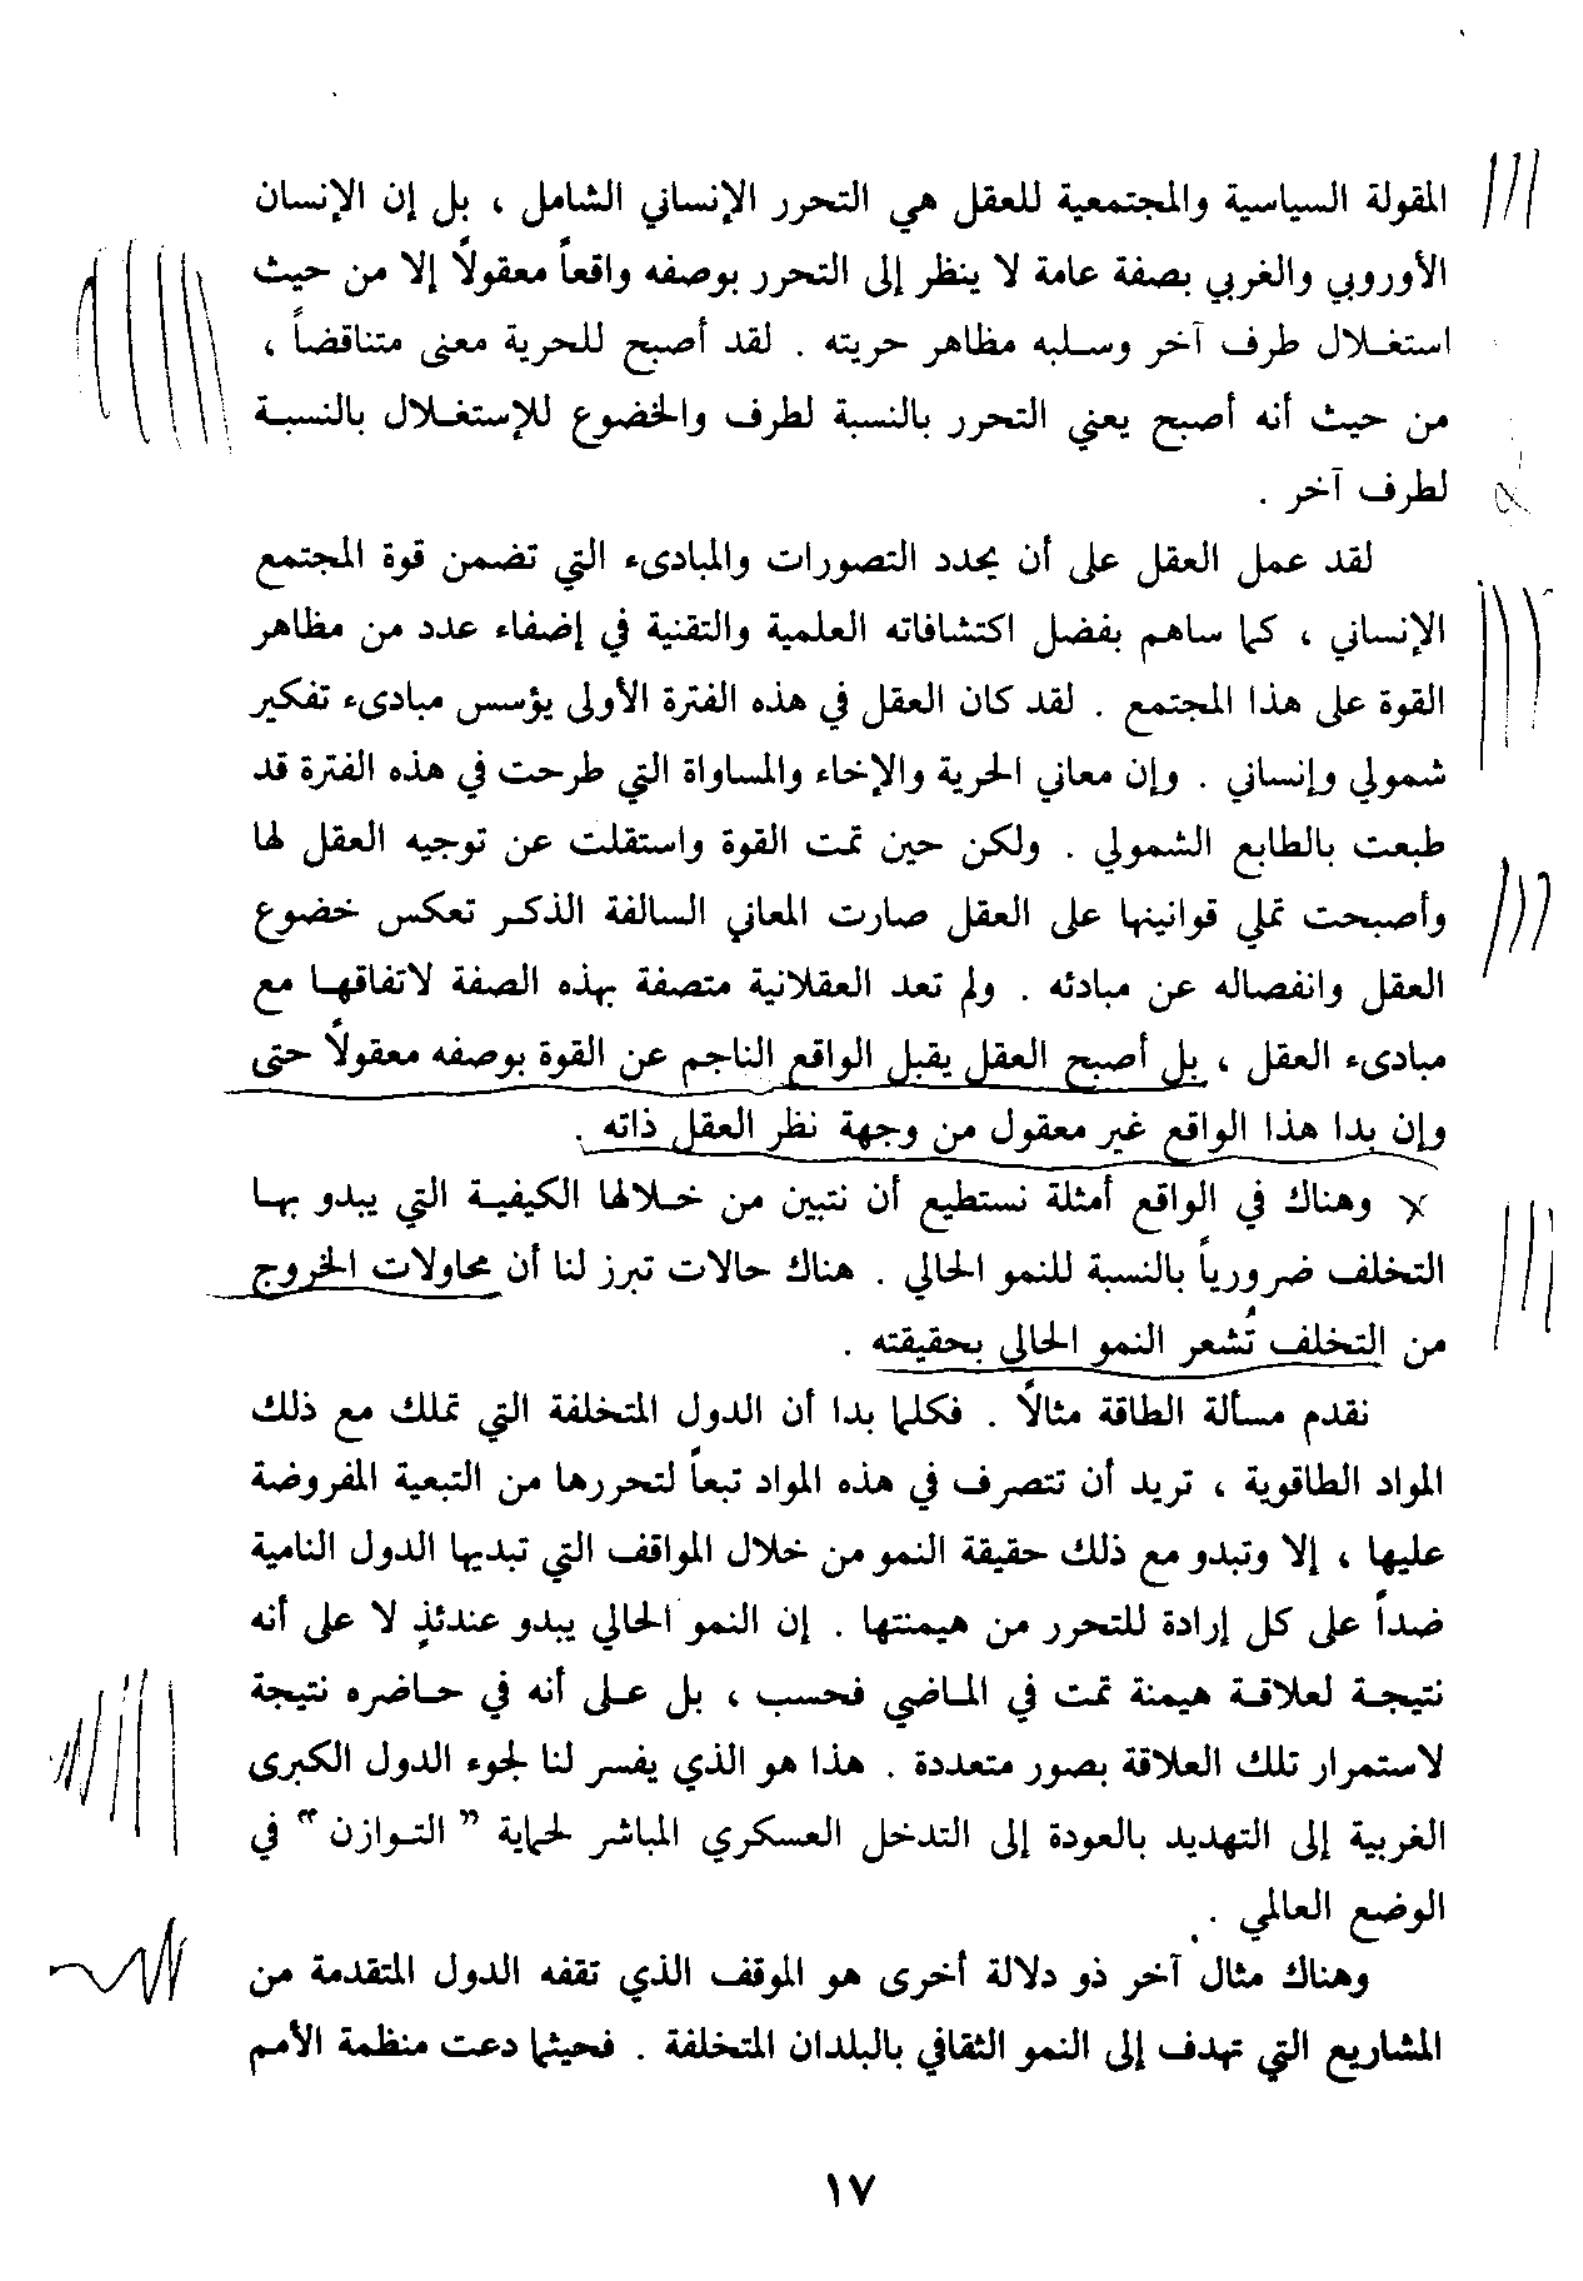 المقولة السياسية والمجتمعية للعقل هي التحرر الإنساني الشامل ، بل إن الإنسان
الأوروبي والغربي بصفة عامة لا ينظر إلى التحرر بوصفه واقعاً معقولاً إلا من حيث
استغلال طرف آخر وسلبه مظاهر حريته . لقد أصبح للحرية معنى متناقضاً ،
من حيث أنه أصبح يعني التحرر بالنسبة لطرف والخضوع للإستغلال بالنسبة
لطرف آخر .
لقد عمل العقل على أن يحدد التصورات والمبادىء التي تضمن قوة المجتمع
الإنساني ، كما ساهم بفضل اكتشافاته العلمية والتقنية في إضفاء عدد من مظاهر
القوة على هذا المجتمع . لقد كان العقل في هذه الفترة الأولى يؤسس مبادىء تفكير
شمولي وإنساني . وإن معاني الحرية والإخاء والمساواة التي طرحت في هذه الفترة قد
طبعت بالطابع الشمولي . ولكن حين تمت القوة واستقلت عن توجيه العقل لها
وأصبحت تملي قوانينها على العقل صارت المعاني السالفة الذكر تعكس خضوع
العقل وانفصاله عن مبادئه . ولم تعد العقلانية متصفة بهذه الصفة لاتفاقها مع
مبادىء العقل ، بل أصبح العقل يقبل الواقع الناجم عن القوة بوصفه معقولاً حتى
وإن بدا هذا الواقع غير معقول من وجهة نظر العقل ذاته .
x وهناك في الواقع أمثلة نستطيع أن نتبين من خلالها الكيفية التي يبدو بها
التخلف ضرورياً بالنسبة للنمو الحالي . هناك حالات تبرز لنا أن محاولات الخروج
من التخلف تُشعر النمو الحالي بحقيقته .
نقدم مسألة الطاقة مثالاً . فكلما بدا أن الدول المتخلفة التي تملك مع ذلك
المواد الطاقوية ، تريد أن تتصرف في هذه المواد تبعاً لتحررها من التبعية المفروضة
عليها ، إلا وتبدو مع ذلك حقيقة النمو من خلال المواقف التي تبديها الدول النامية
ضداً على كل إرادة للتحرر من هيمنتها . إن النمو الحالي يبدو عندئذٍ لا على أنه
نتيجة لعلاقة هيمنة تمت في الماضي فحسب ، بل على أنه في حاضره نتيجة
لاستمرار تلك العلاقة بصور متعددة . هذا هو الذي يفسر لنا لجوء الدول الكبرى
الغربية إلى التهديد بالعودة إلى التدخل العسكري المباشر لحماية " التوازن " في
الوضع العالمي .
وهناك مثال آخر ذو دلالة أخرى هو الموقف الذي تقفه الدول المتقدمة من
المشاريع التي تهدف إلى النمو الثقافي بالبلدان المتخلفة . فحيثما دعت منظمة الأمم
١٧